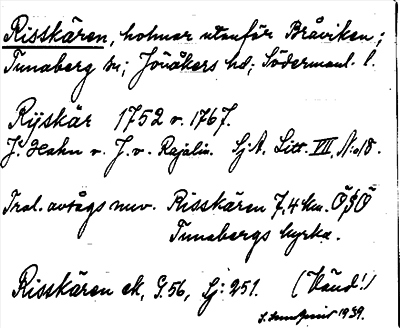 Risskären, holmar utanför Bråviken;
Tunaberg sn; Jönåkers hd; Södermanl. l.
Rijskär 1752 o. 1767.
J. Hahn o. J. v. Rajalin. Sj.A. Litt. VII, No 18.
Trol. avtågs nuv. Risskären 7,4 km. ÖSÖ
Tunabergs kyrka.
Risskären ek, G. 56, Sj: 251. (Vänd!)
1939.